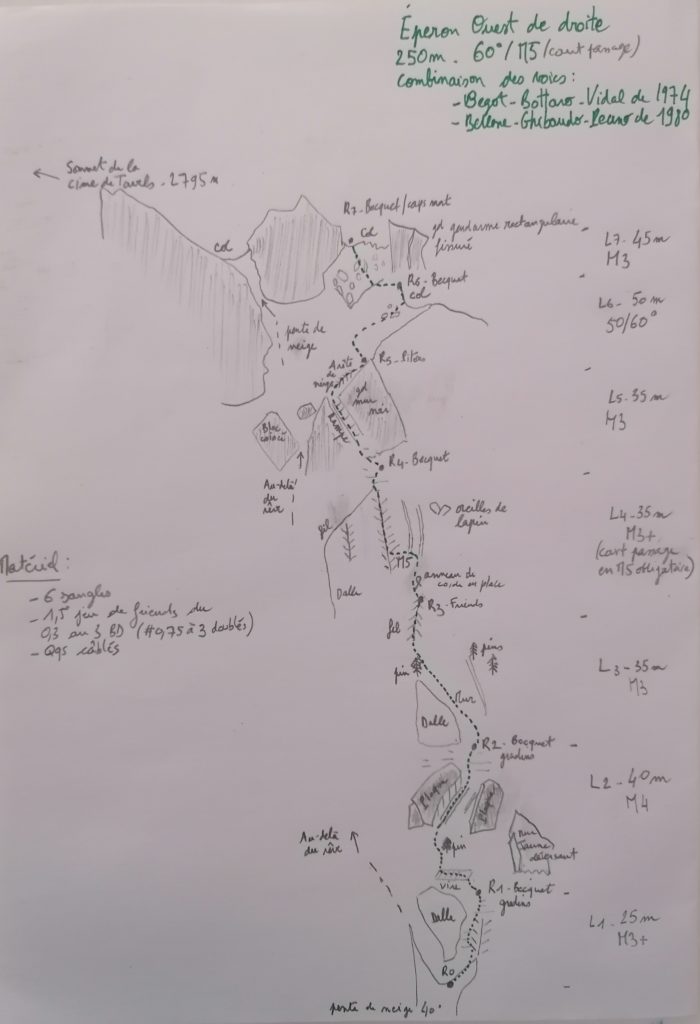 Éperon Ouest de droite
250m. 60°/M5 (court passage)
combinaison des voies :
- Begot-Bottaro-Vidal de 1974
- Bellone-Ghibaudo-Reano de 1980
← Sommet de la
cime de Tavels. 2795m
R7-Becquet/caps mnt
gd gendarme rectangulaire
fissuré
col
col
L7-45m
M3
R6-Becquet
col
L6-50m
50/60°
pente de
neige
Arête
de
neige
R5-Pitons
gd
mur
noir
L5-35m
M3
Rampe
Bloc
coincé
R4-Becquet
Au-delà
du
rêve
oreilles de
lapin
fil
L4-35m
M3+
(court passage
en M5 obligatoire)
M5
Dalle
anneau de
corde en place
R3-Friends
Matériel :
- 6 sangles
- 1,5 jeu de friends du
0,3 au 3 BD (#0,75 à 3 doublés)
- Qqs câblés
fil
pins
pin
L3-35m
M3
Mur
Dalle
R2-Becquet
gradins
L2-40m
M4
Plaque
Plaque
Au-delà
du rêve
pin
mur
Jaune
vire
R1-Becquet
gradins
Dalle
L1-25m
M3+
R0
pente de neige 40°